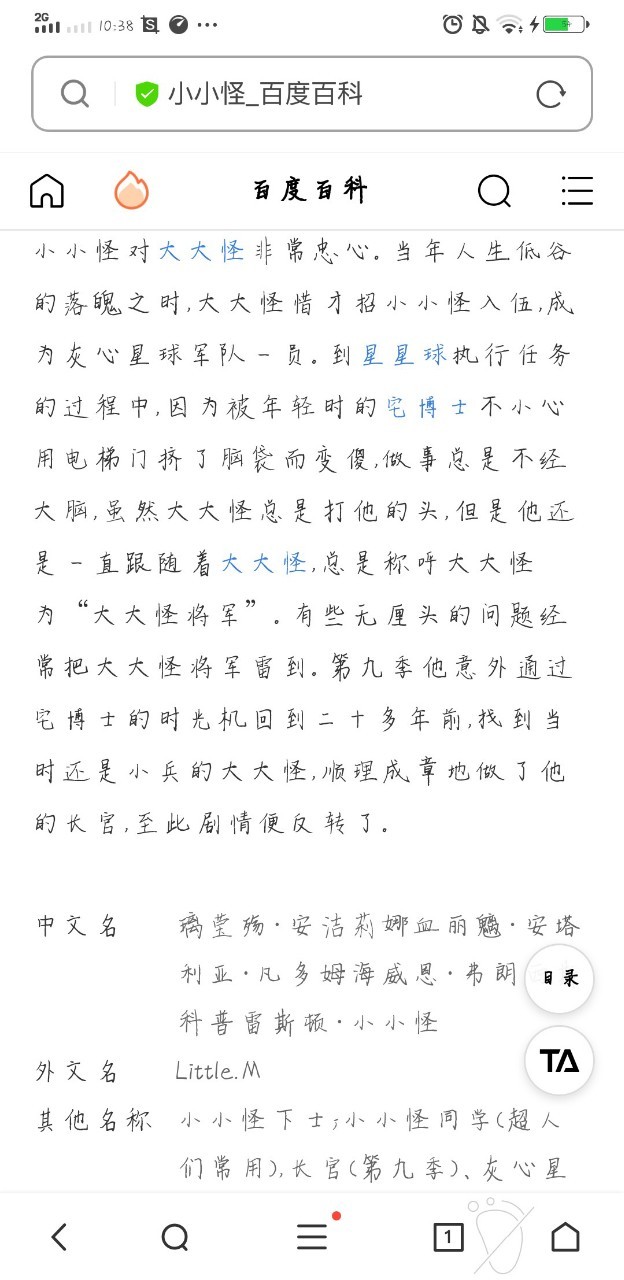 2G
10:38
小小怪_百度百科
百度百科
小小怪对大大怪非常忠心。当年人生低谷
的落魄之时,大大怪惜才招小小怪入伍,成
为灰心星球军队一员。到星星球执行任务
的过程中,因为被年轻时的宅博士不小心
用电梯门挤了脑袋而变傻,做事总是不经
大脑,虽然大大怪总是打他的头,但是他还
是一直跟随着大大怪,总是称呼大大怪
为“大大怪将军”。有些无厘头的问题经
常把大大怪将军雷到。第九季他意外通过
宅博士的时光机回到二十多年前,找到当
时还是小兵的大大怪,顺理成章地做了他
的长官,至此剧情便反转了。
中文名 璃莹殇·安洁莉娜血丽魑·安塔
利亚·凡多姆海威恩·弗朗
科普雷斯顿·小小怪
目录
外文名 Little.M
TA
其他名称 小小怪下士;小小怪同学(超人
们常用),长官(第九季)、灰心星
1